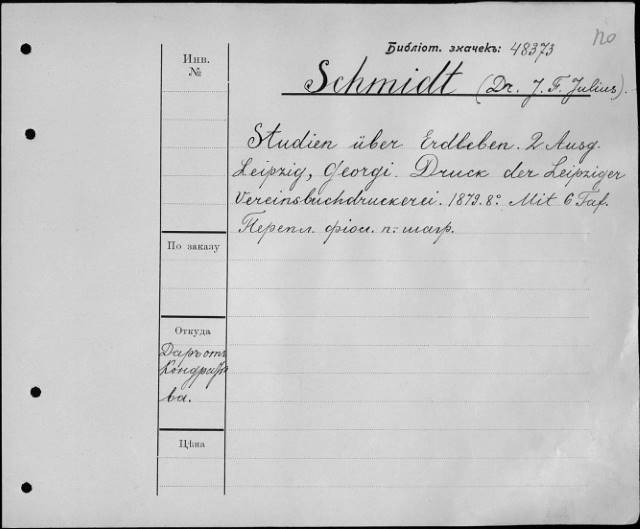 по
Библіот. значекъ: 48373
Инв. №
Schmidt (Dr. J. F. Julius).
Studien über Erdbeben. 2 Ausg.
Leipzig, Georgi. Druck der Leipziger
Vereinsbuchdruckerei. 1879. 8º. Mit 6 Taf.
Перепл. фіол. п. шагр.
По заказу
Откуда
Даръ отъ
Кондратье
ва.
Цѣна